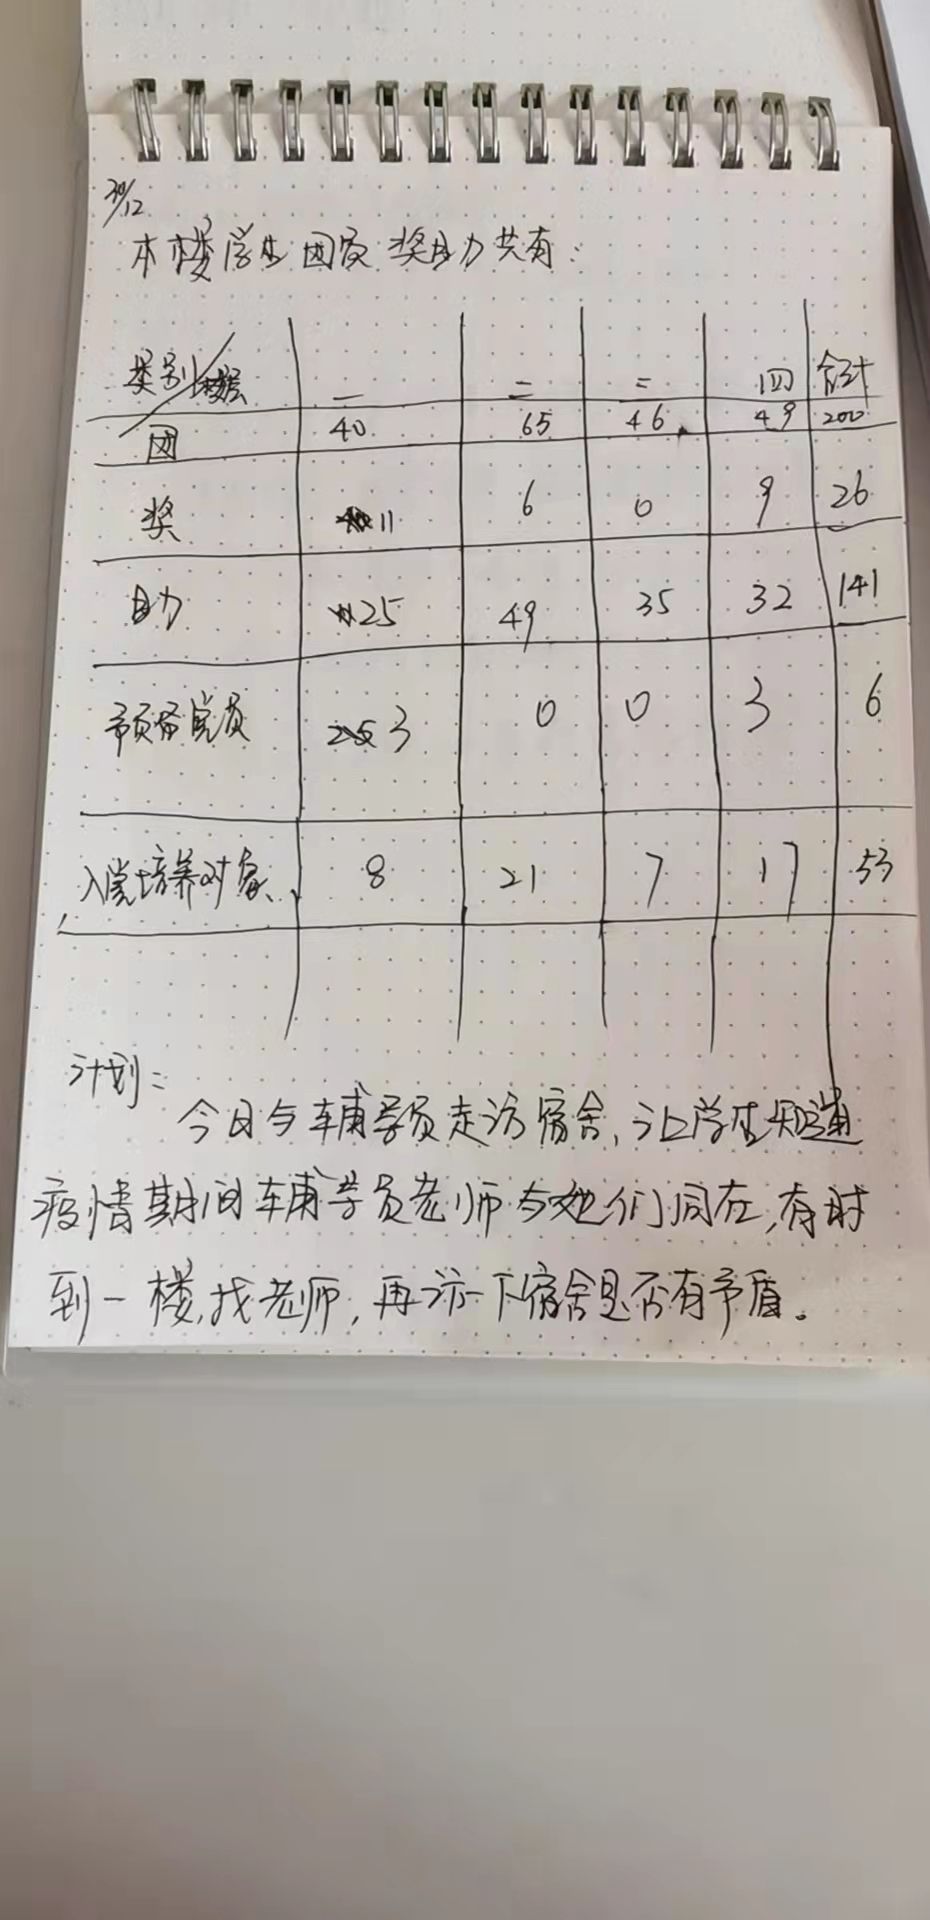 30/12
本楼学生团员奖助共有:
类别 楼层 一 二 三 四 合计
团 40 65 46 49 200
奖 11 6 0 9 26
助 25 49 35 32 141
预备党员 3 0 0 3 6
入党培养对象 8 21 7 17 53
计划:
今日与辅导员走访宿舍,让学生知道
疫情期间辅导员老师与她们同在,有时
到一楼找老师,再访一下宿舍是否有矛盾。